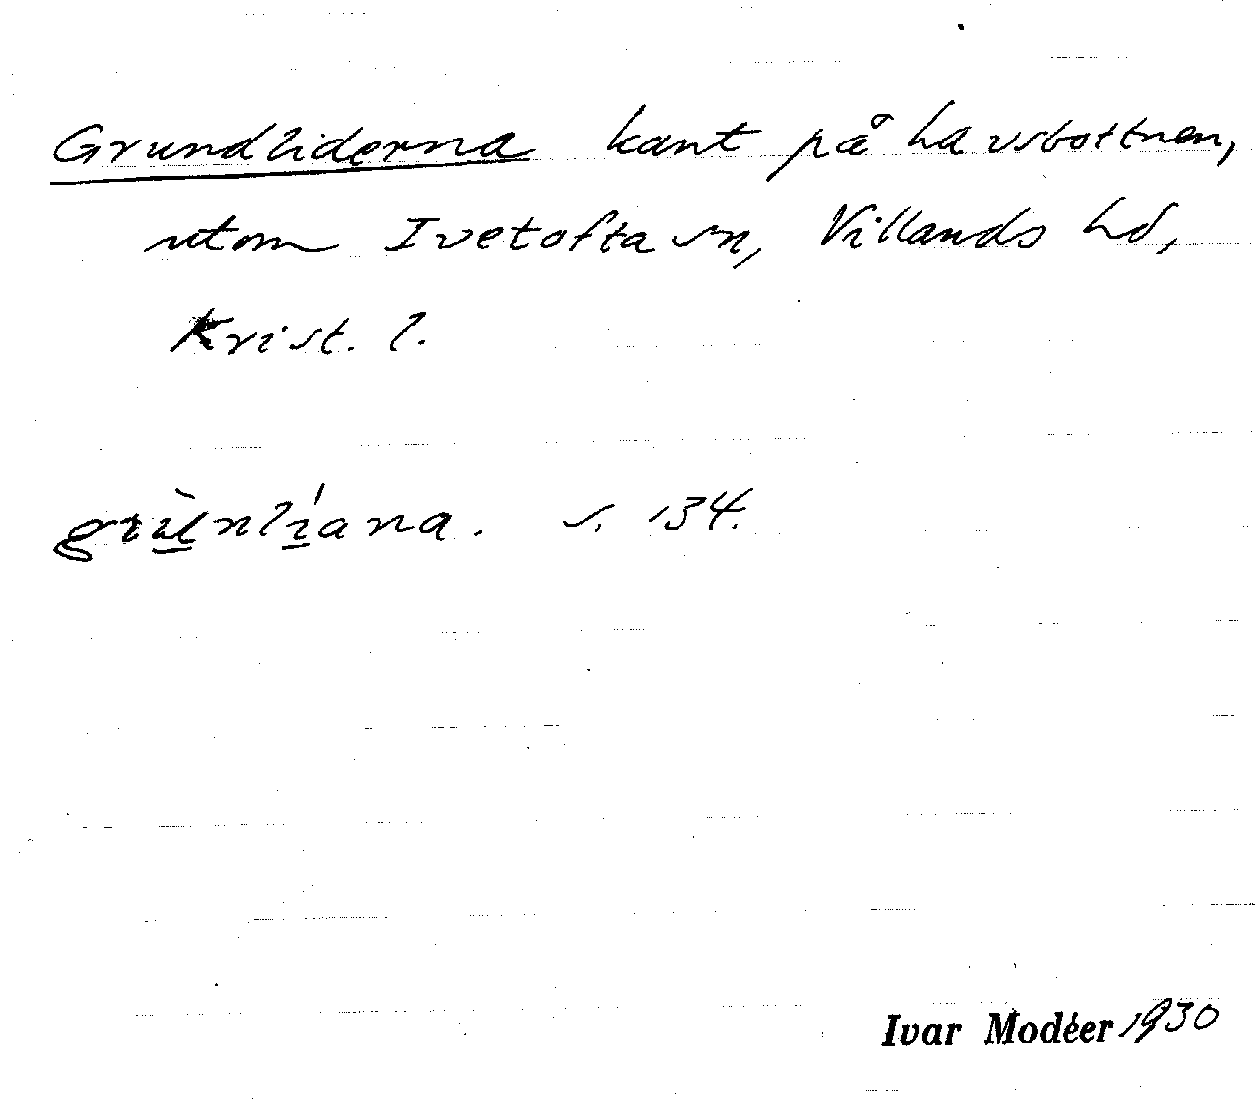 Grundliderna kant på havsbottnen,
utom Ivetofta sn, Villands hd,
Krist. l.
grùnlíana. s. 134.
Ivar Modéer 1930